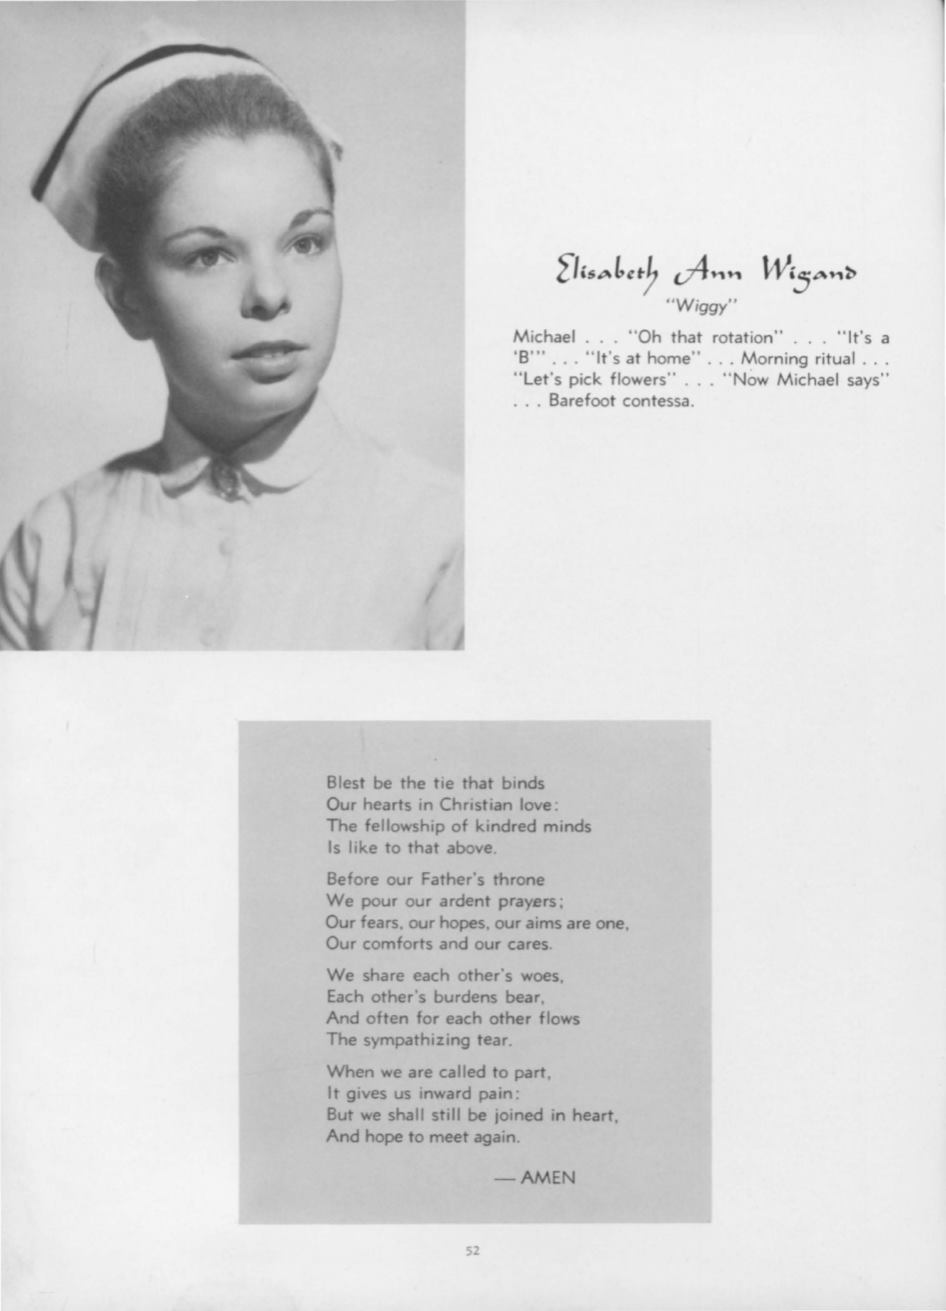 Elisabeth Ann Wigand
"Wiggy"
Michael . . . "Oh that rotation" . . . "It's a
'B'" . . . "It's at home" . . . Morning ritual . . .
"Let's pick flowers" . . . "Now Michael says"
. . . Barefoot contessa.
Blest be the tie that binds
Our hearts in Christian love:
The fellowship of kindred minds
Is like to that above.
Before our Father's throne
We pour our ardent prayers;
Our fears, our hopes, our aims are one,
Our comforts and our cares.
We share each other's woes,
Each other's burdens bear,
And often for each other flows
The sympathizing tear.
When we are called to part,
It gives us inward pain:
But we shall still be joined in heart,
And hope to meet again.
— AMEN
52